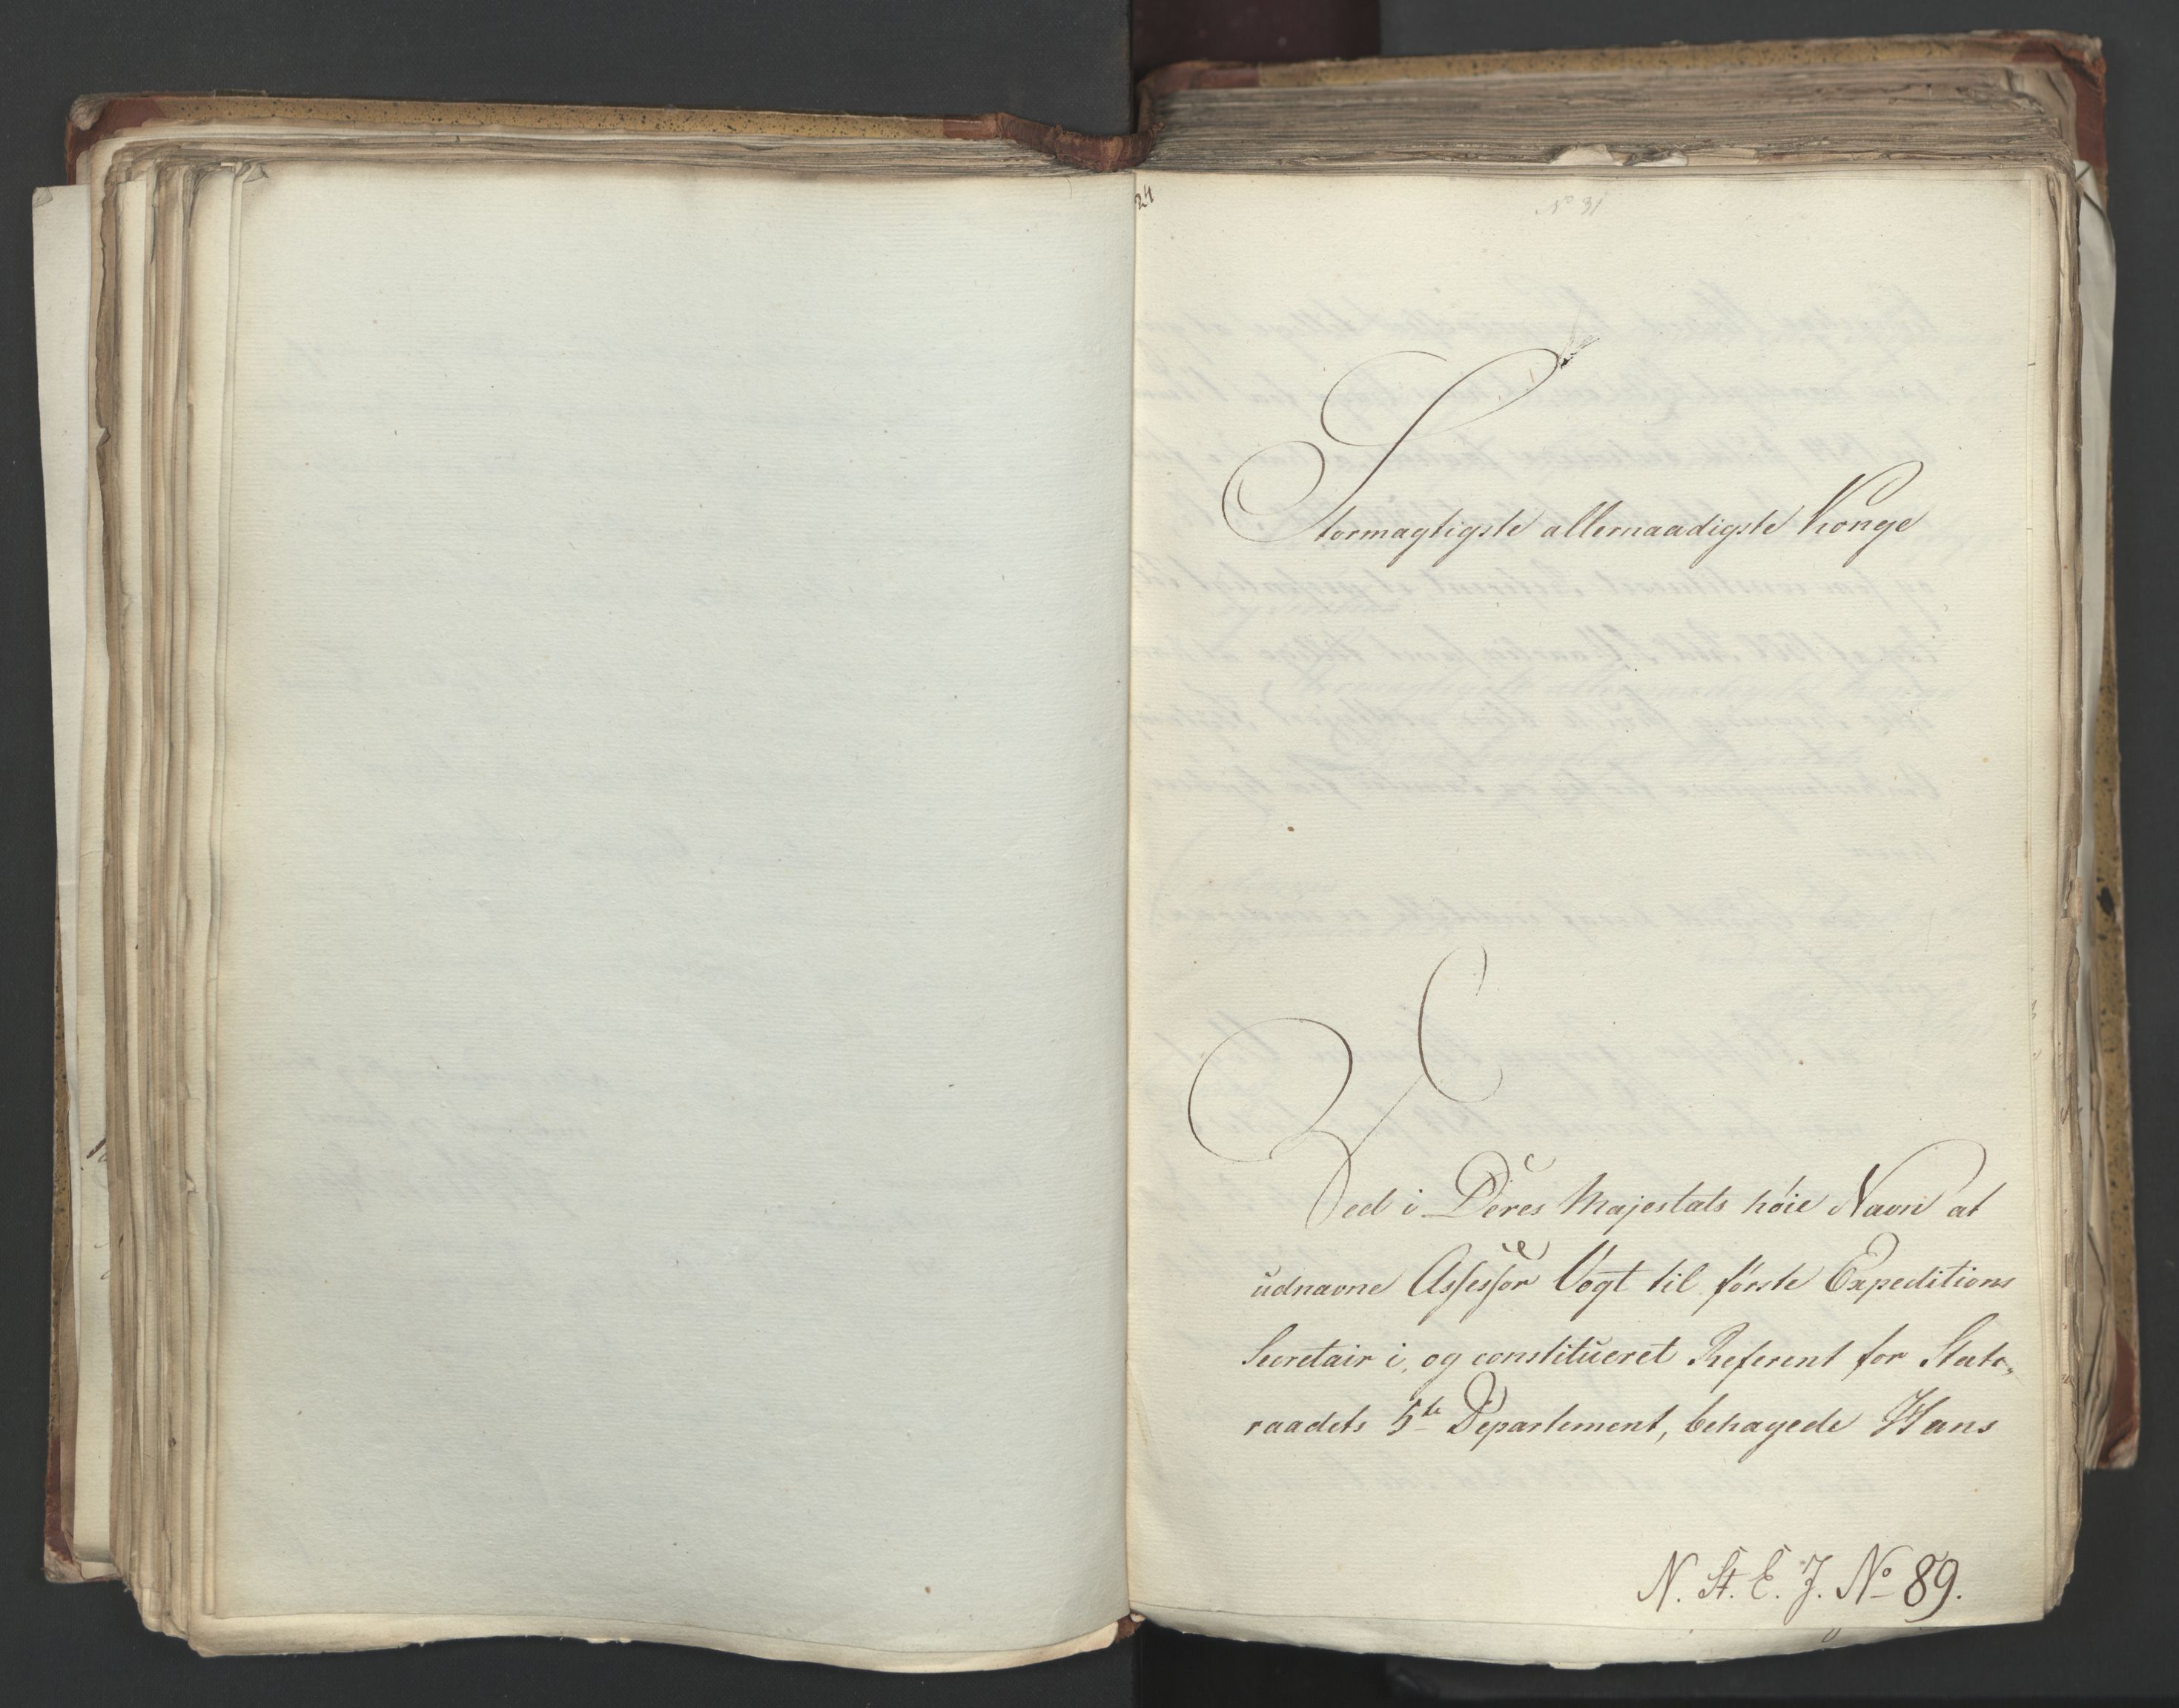 24
No 31
Stormagtigste allernaadigste Konge
Ved i Deres Majestæts høie Navn at
udnævne Assessor Vogt til første Expeditions
Secretair i, og constitueret Referent for Stats-
raadets 5te Departement, behagede Hans
N. St. E. J. No 89.